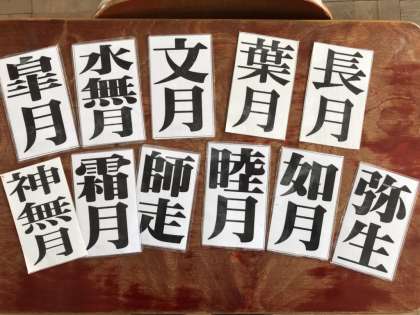 皐月
水無月
文月
葉月
長月
神無月
霜月
師走
睦月
如月
弥生